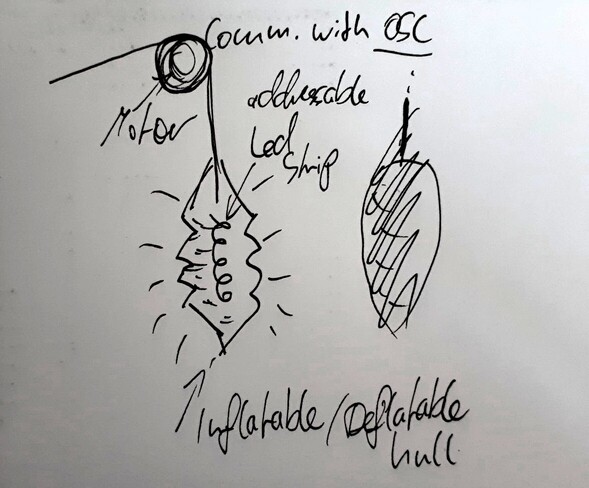 Comm. with OSC
Motor
addressable
Led
Strip
Inflatable/Deflatable
hull